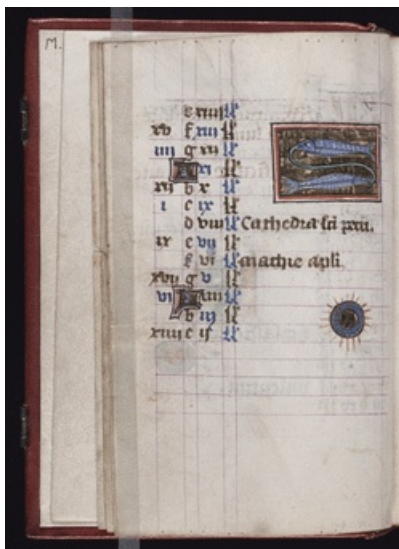 M.
e xiiii kl
xv f xiii kl
iiii g xii kl
A xi kl
xii b x kl
i c ix kl
d viii kl Cathedra sci petri.
ix e vii kl
f vi kl mathie apli.
xvii g v kl
vi A iiii kl
b iii kl
xiiii c ii kl